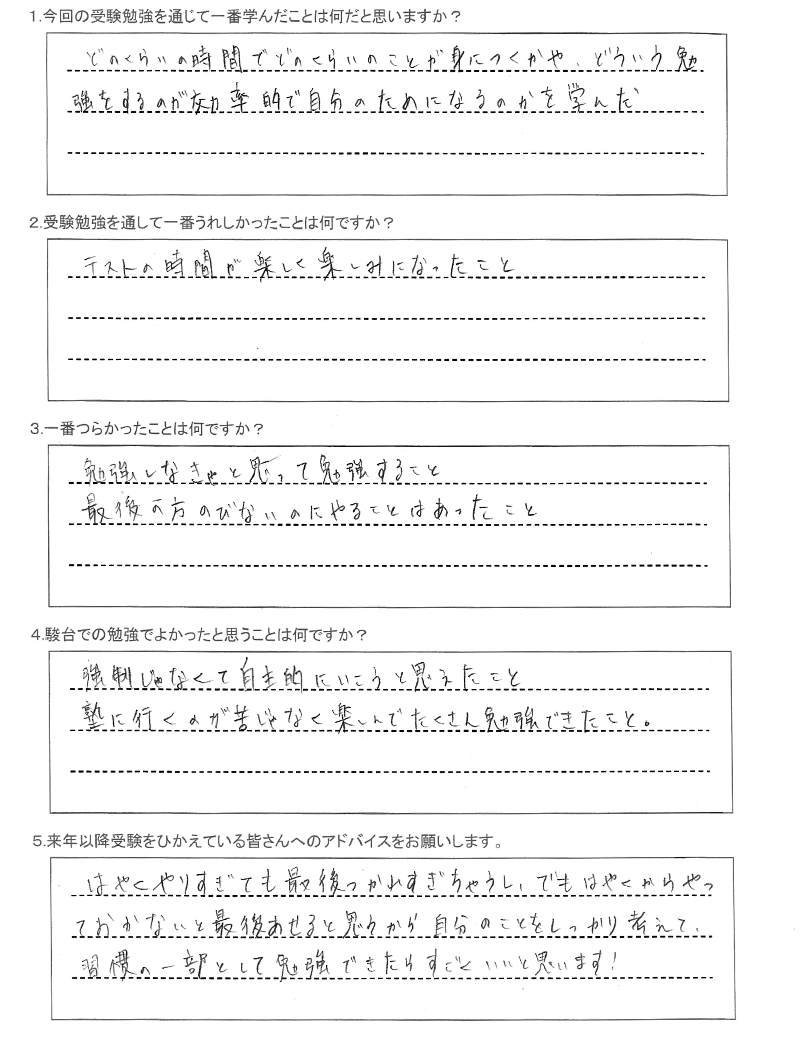 1.今回の受験勉強を通じて一番学んだことは何だと思いますか？
どのくらいの時間でどのくらいのことが身につくかや、どういう勉
強をするのが効率的で自分のためになるのかを学んだ
2.受験勉強を通して一番うれしかったことは何ですか？
テストの時間が楽しく楽しみになったこと
3.一番つらかったことは何ですか？
勉強しなきゃと思って勉強すること
最後の方のびないのにやることはあったこと
4.駿台での勉強でよかったと思うことは何ですか？
強制じゃなくて自主的にいこうと思えたこと
塾に行くのが苦じゃなく楽しんでたくさん勉強できたこと。
5.来年以降受験をひかえている皆さんへのアドバイスをお願いします。
はやくやりすぎても最後つかれすぎちゃうし、でもはやくからやっ
ておかないと最後あせると思うから自分のことをしっかり考えて、
習慣の一部として勉強できたらすごくいいと思います!